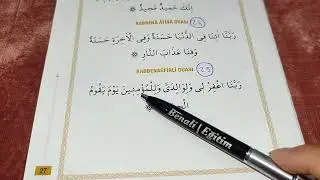 اِنَّكَ حَمِيدٌ مَجِيدٌ
RABBENA ÂTİNA DUASI
رَبَّنَا اٰتِنَا فِى الدُّنْيَا حَسَنَةً وَفِى الْاٰخِرَةِ حَسَنَةً
وَقِنَا عَذَابَ النَّارِ
RABBENAĞFİRLİ DUASI
رَبَّنَا اغْفِرْ لِى وَلِوَالِدَىَّ وَلِلْمُؤْمِنِينَ يَوْمَ يَقُومُ
Benali Eğitim
27